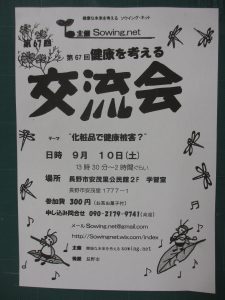 健康な未来を考える ソウイング・ネット
主催 Sowing.net
第67回
第67回 健康を考える
交流会
テーマ "化粧品で健康被害?"
日時 9月 10日(土)
13時30分〜2時間ぐらい
場所 長野市安茂里公民館2F 学習室
長野市安茂里1777−1
参加費 300円(お茶お菓子付)
申し込み問合せ 090-2179-9741
メール Sowing.net@gmail.com
http://Sowingnet.wix.com/index
主催 健康な未来を考える sowing.net
後援 長野市